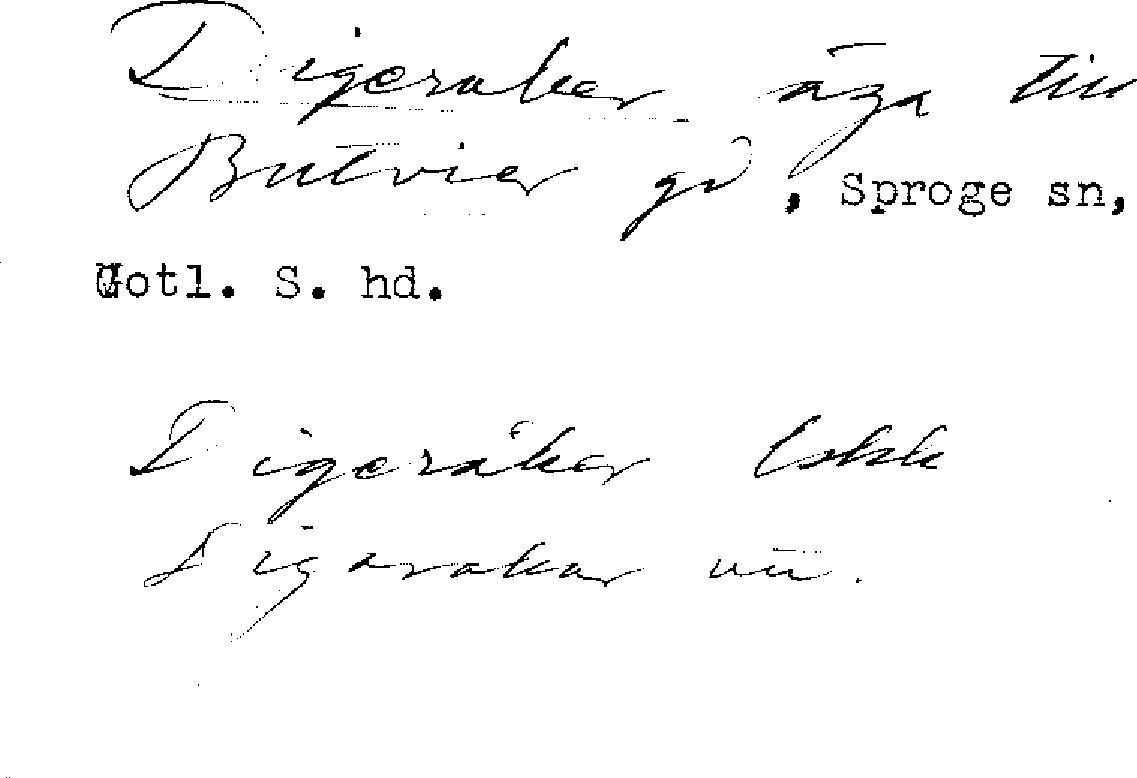 Digeraker äga till
Butvier gd, Sproge sn,
Gotl. S. hd.
Digeråker Lskk
Digarakar